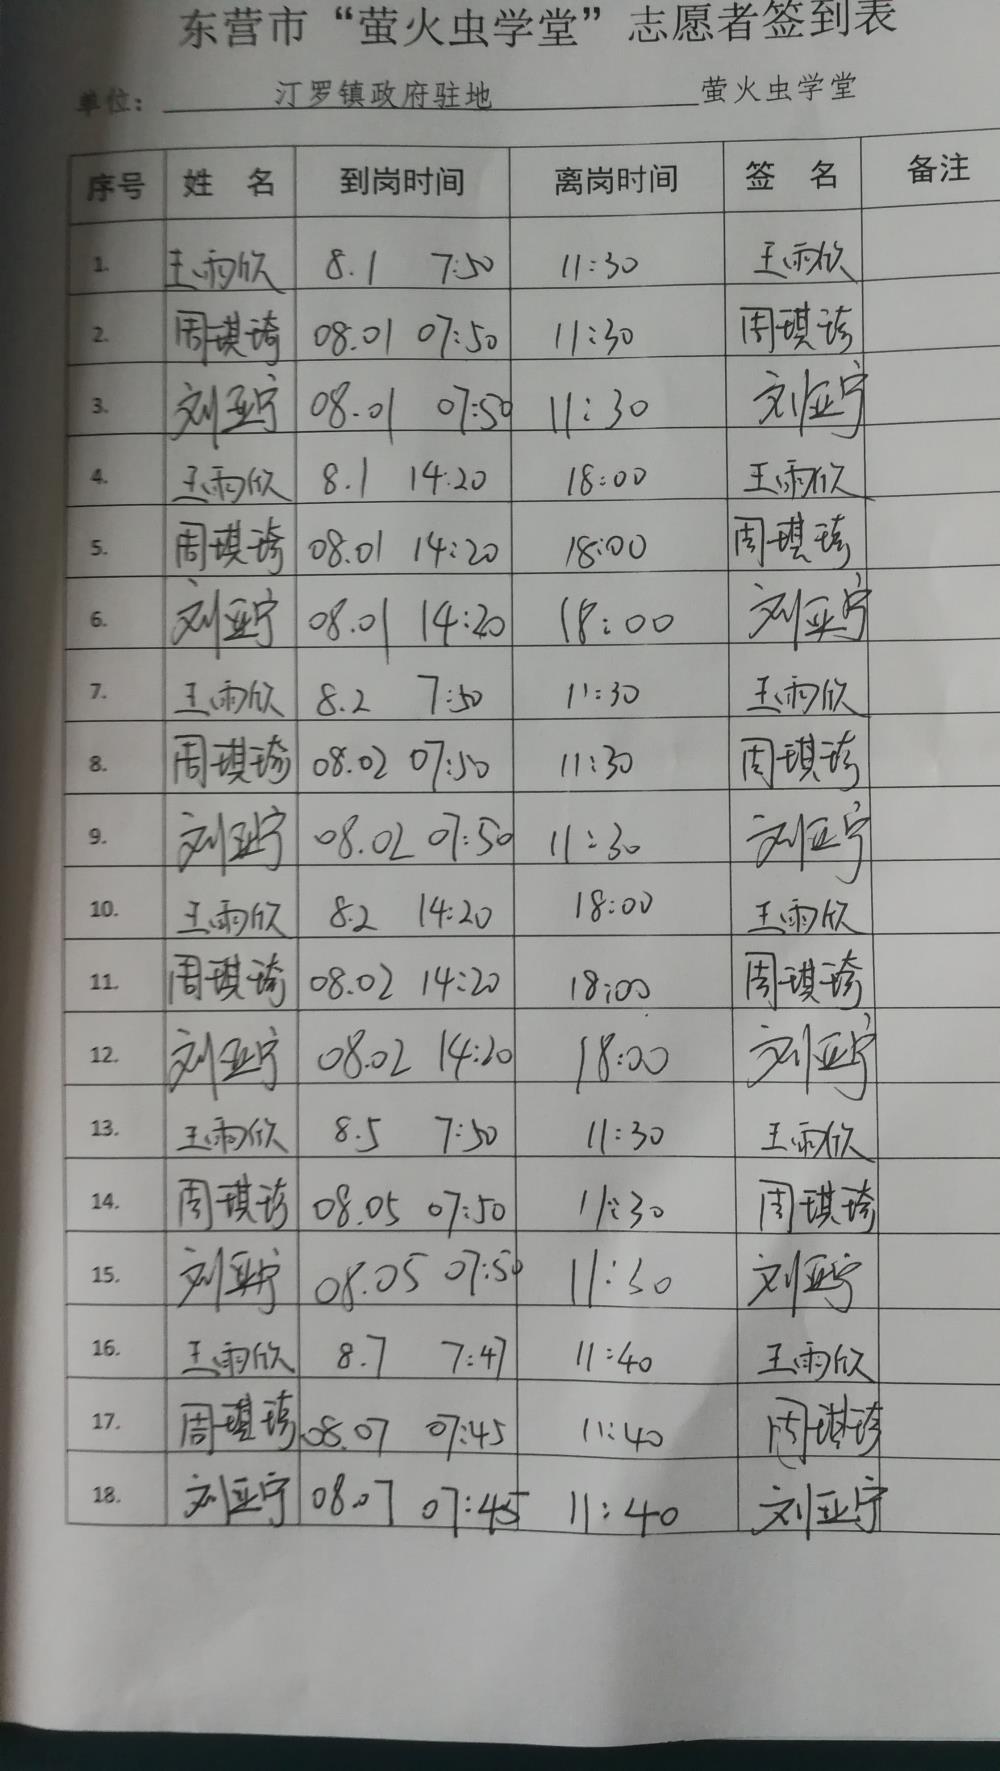 东营市“萤火虫学堂”志愿者签到表
单位： 汀罗镇政府驻地 萤火虫学堂
序号 姓 名 到岗时间 离岗时间 签 名 备注
1. 王雨欣 8.1 7:50 11:30 王雨欣
2. 周琪琦 08.01 07:50 11:30 周琪琦
3. 刘亚宁 08.01 07:50 11:30 刘亚宁
4. 王雨欣 8.1 14:20 18:00 王雨欣
5. 周琪琦 08.01 14:20 18:00 周琪琦
6. 刘亚宁 08.01 14:20 18:00 刘亚宁
7. 王雨欣 8.2 7:50 11:30 王雨欣
8. 周琪琦 08.02 07:50 11:30 周琪琦
9. 刘亚宁 08.02 07:50 11:30 刘亚宁
10. 王雨欣 8.2 14:20 18:00 王雨欣
11. 周琪琦 08.02 14:20 18:00 周琪琦
12. 刘亚宁 08.02 14:20 18:00 刘亚宁
13. 王雨欣 8.5 7:50 11:30 王雨欣
14. 周琪琦 08.05 07:50 11:30 周琪琦
15. 刘亚宁 08.05 07:50 11:30 刘亚宁
16. 王雨欣 8.7 7:47 11:40 王雨欣
17. 周琪琦 08.07 07:45 11:40 周琪琦
18. 刘亚宁 08.07 07:45 11:40 刘亚宁